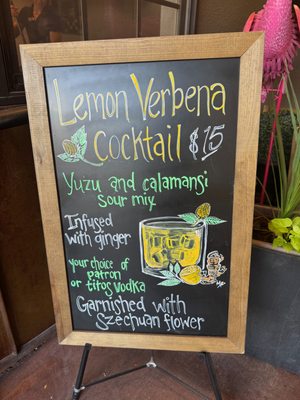 Lemon Verbena
Cocktail $15
Yuzu and calamansi
sour mix
Infused
with ginger
your choice of
patron
or titos vodka
Garnished with
Szechuan flower